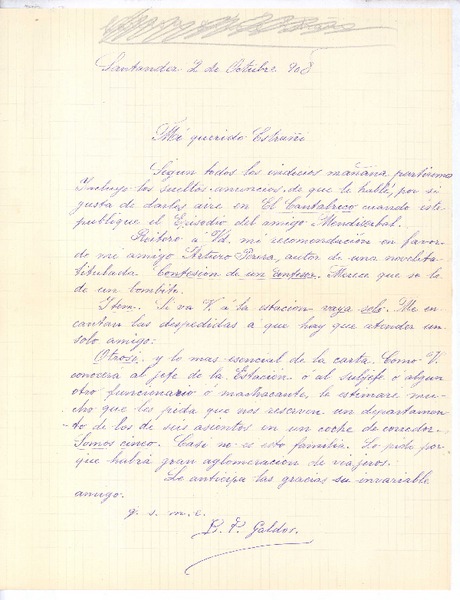 Santander 2 de Octubre 908
Mi querido Estrañi
Segun todos los indicios mañana partiremos
Incluyo los sueltos-anuncios, de que le hablé, por si
gusta de darles aire en El Cantábrico cuando este
publique el Episodio del amigo Mendizabal.
Reitero a Vd. mi recomendacion en favor
de mi amigo Arturo Perera, autor de una noveleta
titulada Confesion de un confesor. Merece que se la
de un bombito.
Item. Si va V. á la estacion vaya solo. Me en
cantan las despedidas a que hay que atender un
solo amigo:
Otrosí. y lo mas esencial de la carta. Como V.
conocera al jefe de la Estación ó al subjefe o algun
otro funcionario ó machacante, le estimare mu-
cho que les pida que nos reserven un departamen-
to de los de seis asientos en un coche de corredor.
Somos cinco. Casi no es esto familia. Lo pido por
que habrá gran aglomeracion de viajeros.
Le anticipa las gracias su invariable
amigo.
q. s. m. e.
B. P. Galdos.